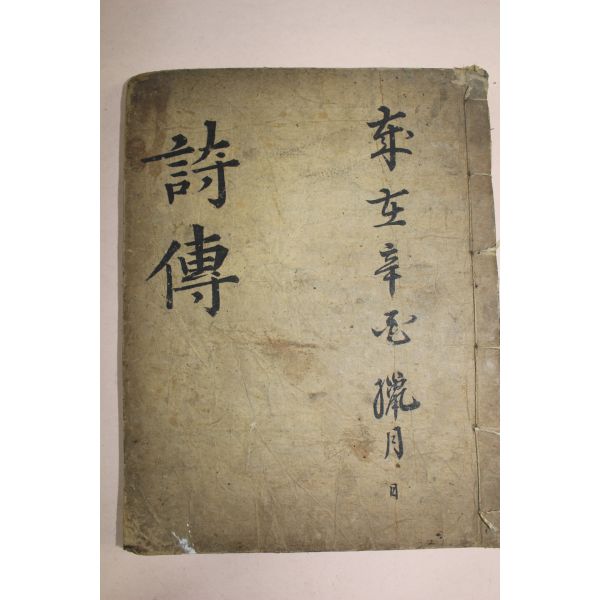 歲在辛酉臘月 日
詩傳